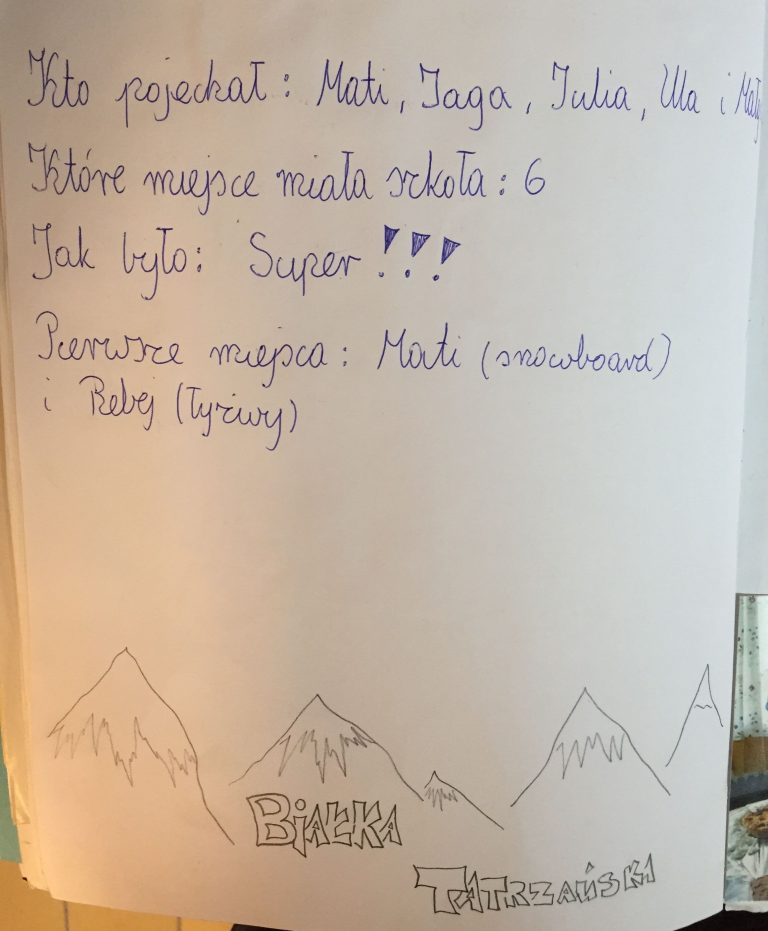 Kto pojechał: Mati, Jaga, Julia, Ula i
Które miejsce miała szkoła: 6
Jak było: Super!!!
Pierwsze miejsca: Mati (snowboard)
i Rebej (łyżwy)
BIAŁKA
TATRZAŃSKA